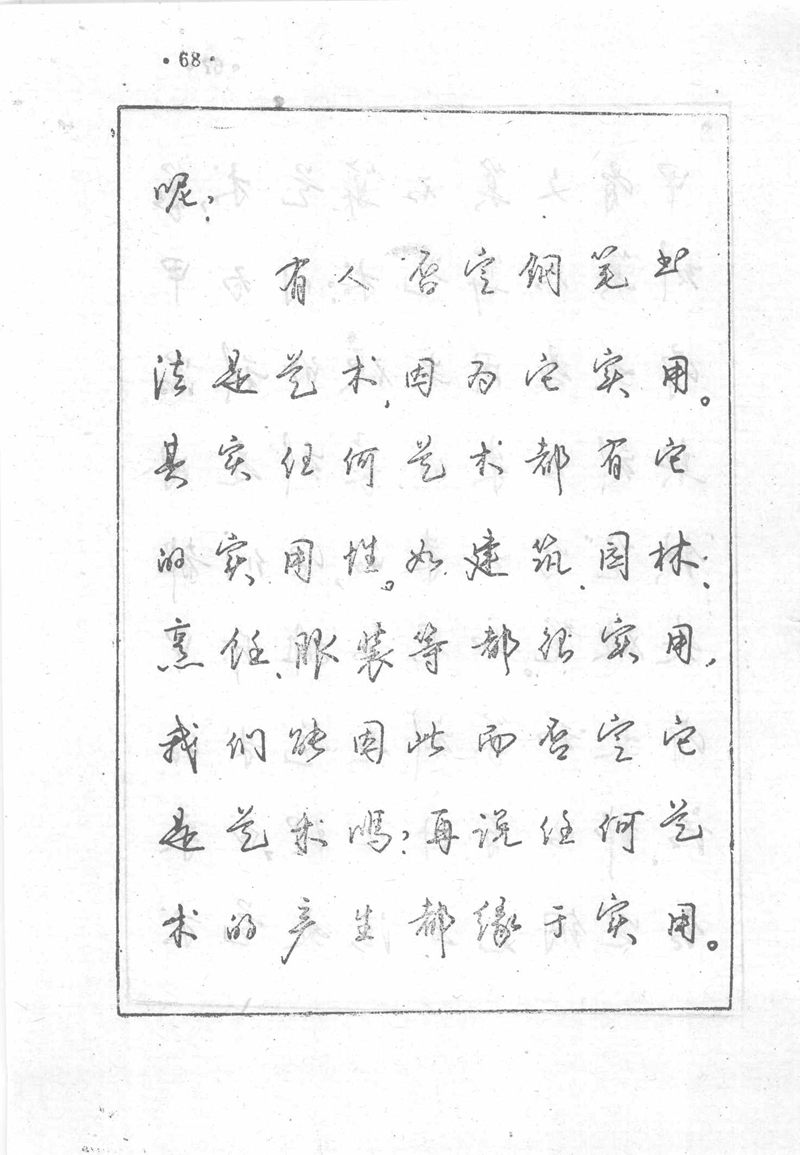 ·68·
呢?
有人否定钢笔书
法是艺术,因为它实用。
其实任何艺术都有它
的实用性。如建筑、园林、
烹饪、服装等都很实用,
我们能因此而否定它
是艺术吗?再说任何艺
术的产生都缘于实用。